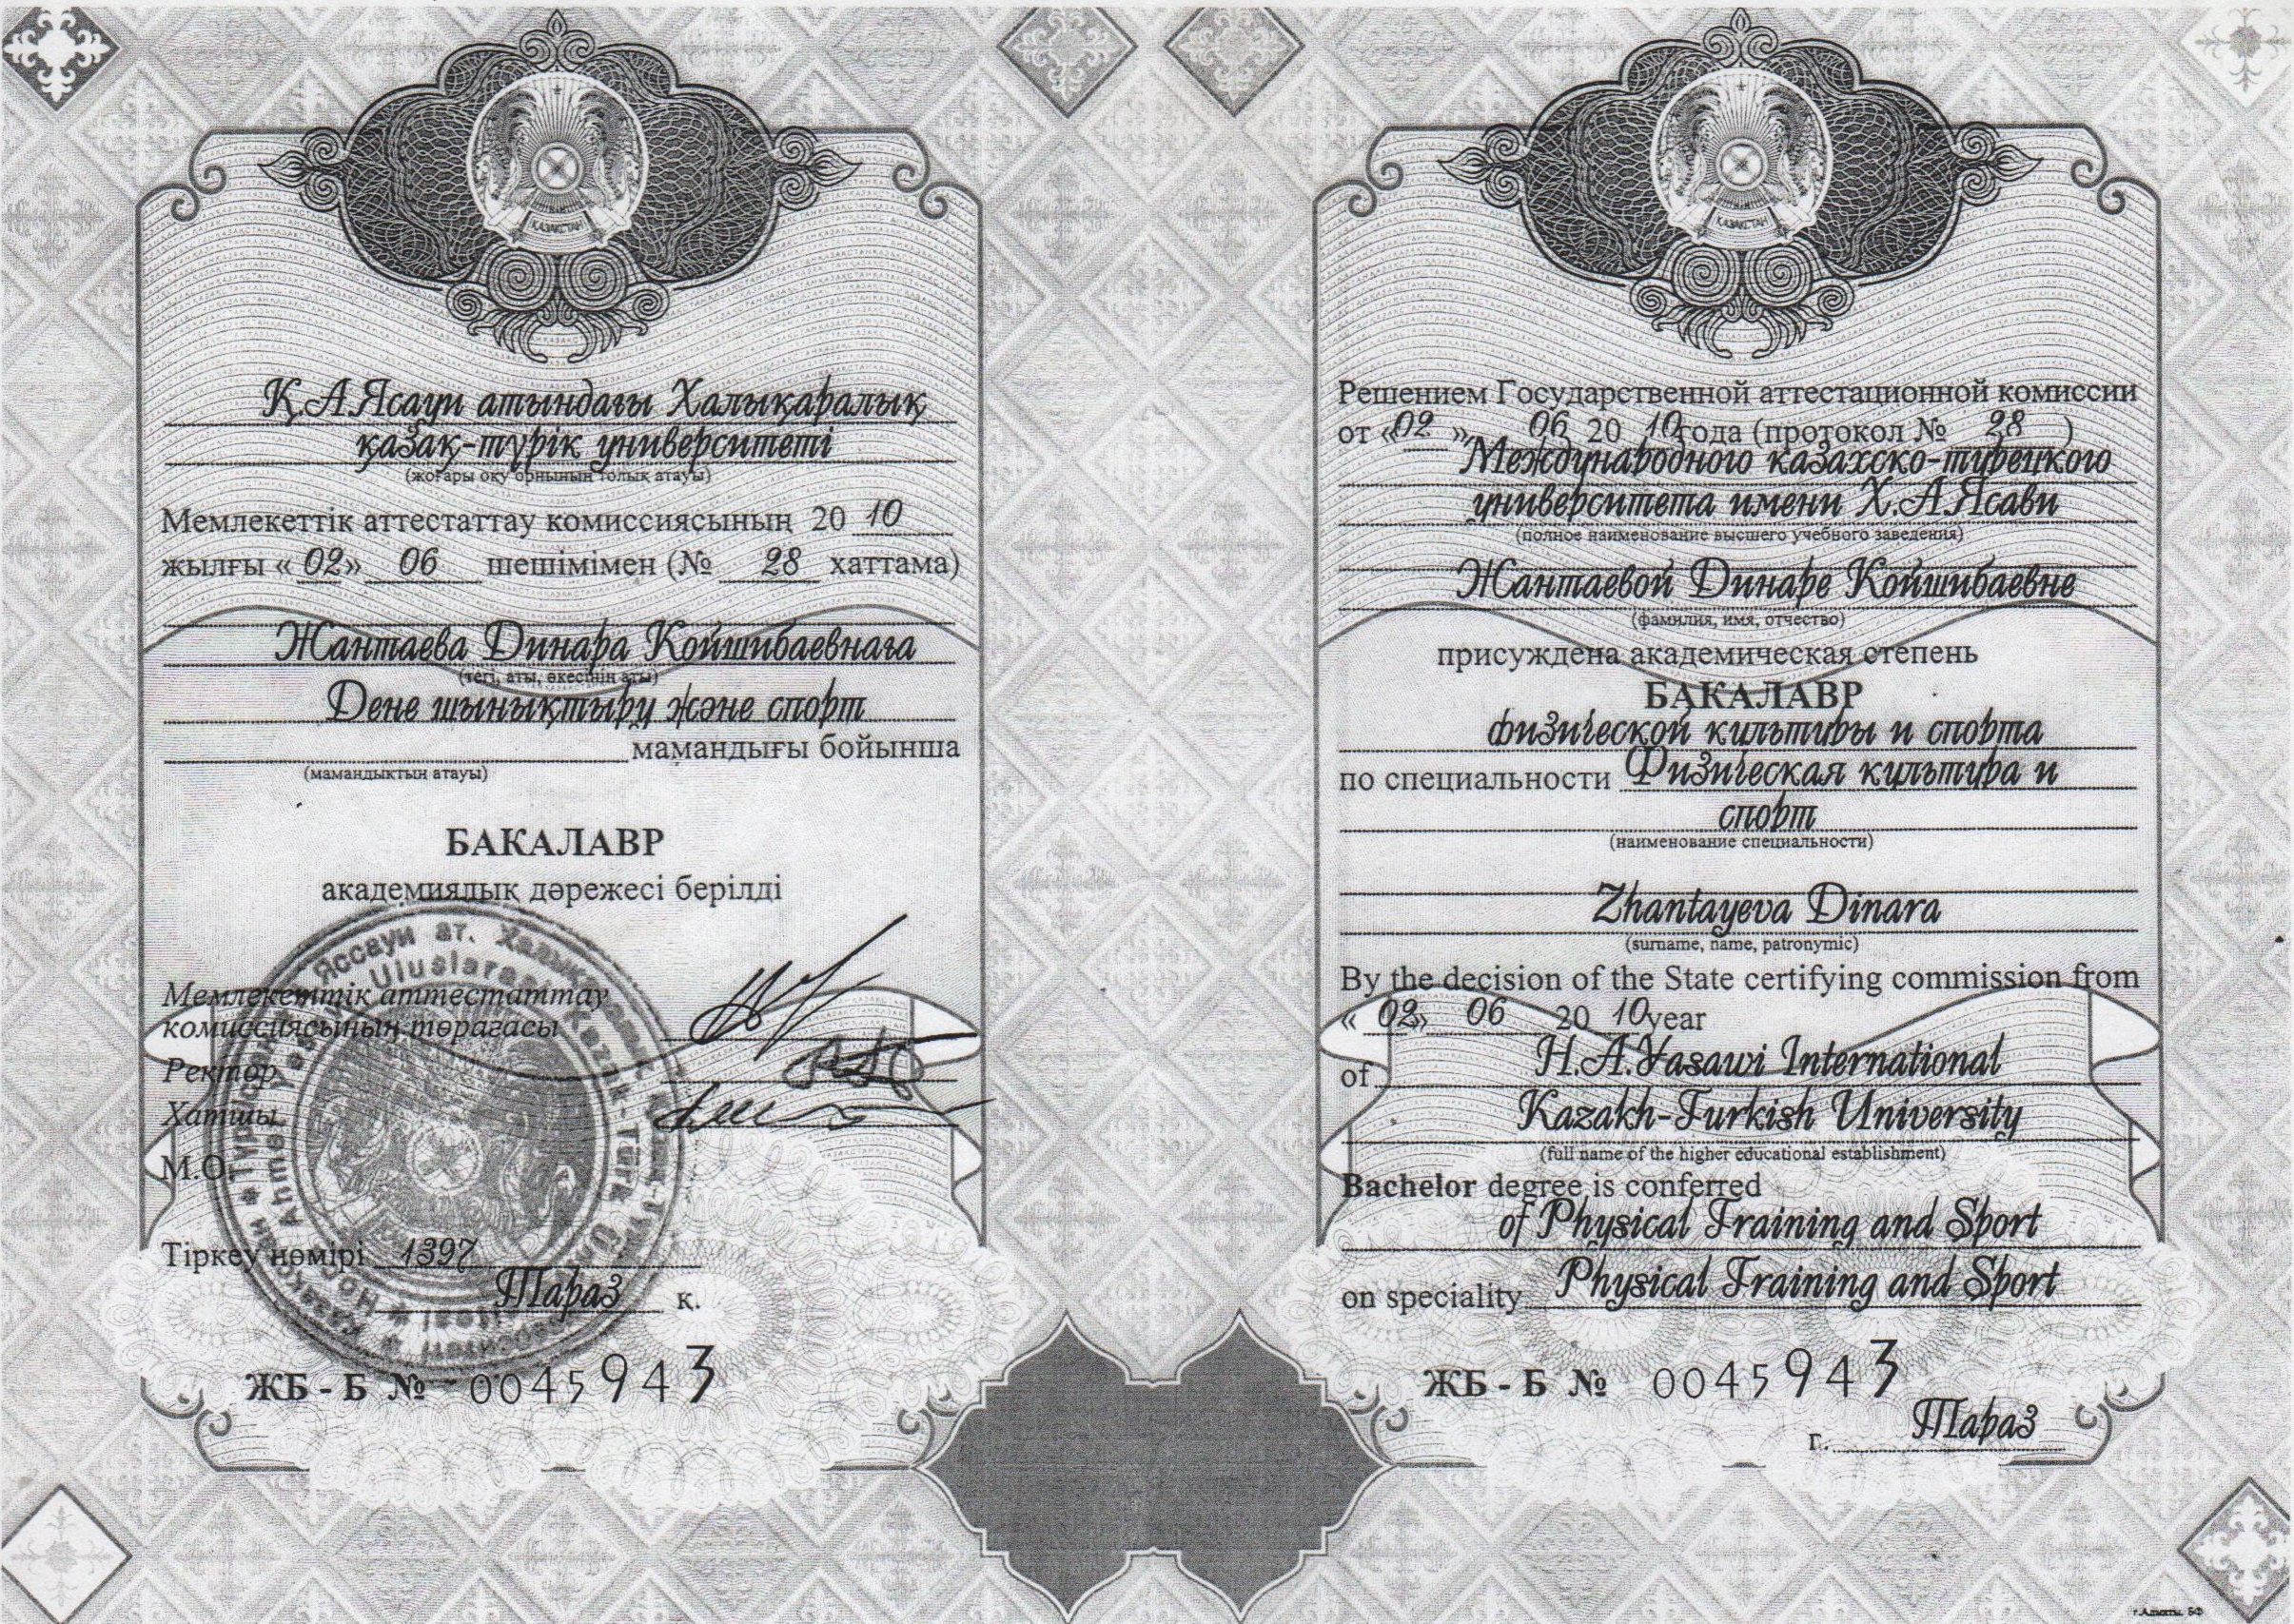 Қ.А.Ясауи атындағы Халықаралық
қазақ-түрік университеті
(жоғары оқу орнының толық атауы)
Мемлекеттік аттестаттау комиссиясының 20 10
жылғы « 02» 06 шешімімен (№ 28 хаттама)
Жантаева Динара Койшибаевнаға
(тегі, аты, әкесінің аты)
Дене шынықтыру және спорт
мамандығы бойынша
(мамандықтың атауы)
БАКАЛАВР
академиялық дәрежесі берілді
Мемлекеттік аттестаттау
комиссиясының төрағасы
Ректор
Хатшы
М.О.
Тіркеу нөмірі 1397
Тараз қ.
ЖБ - Б № 0045943
Яссауи ат. Халықаралық
Uluslararası Kazak-Türk
ҚАЗАҚСТАН
Решением Государственной аттестационной комиссии
от «02 » 06 20 10года (протокол № 28 )
Международного казахско-турецкого
университета имени Х.А.Ясави
(полное наименование высшего учебного заведения)
Жантаевой Динаре Койшибаевне
(фамилия, имя, отчество)
присуждена академическая степень
БАКАЛАВР
физической культуры и спорта
по специальности Физическая культура и
спорт
(наименование специальности)
Zhantayeva Dinara
(surname, name, patronymic)
By the decision of the State certifying commission from
« 02» 06 20 10year
of H.A.Yasawi International
Kazakh-Turkish University
(full name of the higher educational establishment)
Bachelor degree is conferred
of Physical Training and Sport
on speciality Physical Training and Sport
ЖБ - Б № 0045943
г. Тараз
ҚАЗАҚСТАН
г.Алматы, БФ